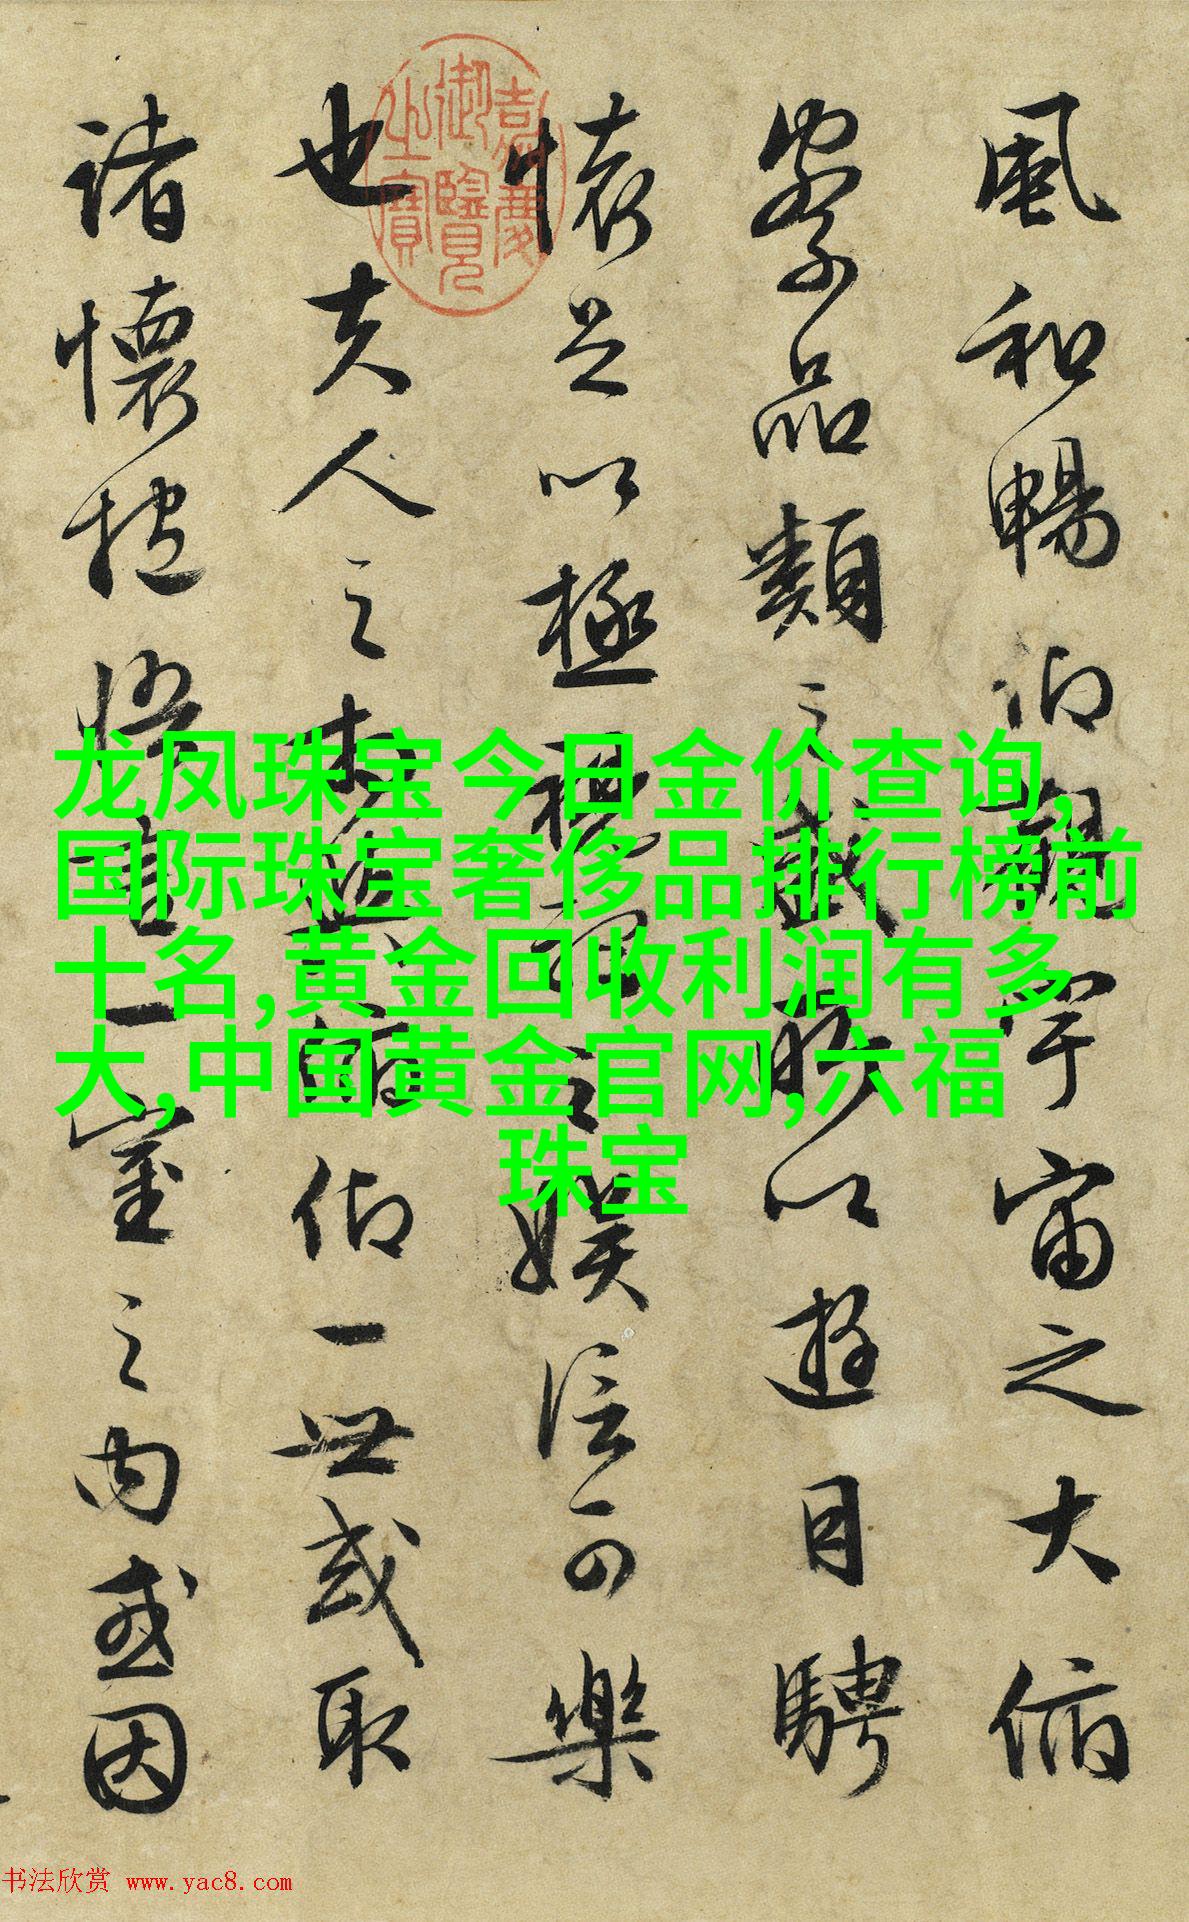 風和暢仰觀宇宙之大俯
察品類之盛所以遊目騁
懷足以極視聽之娛信可樂
也夫人之相與俯仰一世或取
諸懷抱悟言一室之內或因
嘉慶
御覽
之寶
龙凤珠宝今日金价查询,
国际珠宝奢侈品排行榜前
十名,黄金回收利润有多
大,中国黄金官网,六福
珠宝
书法欣赏 www.yac8.com